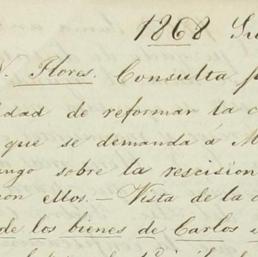 1868
N. Flores. Consulta
dad de reformar la c
que se demanda á M
ngo sobre la rescision
con ellos. — Vista de la
de los bienes de Carlos